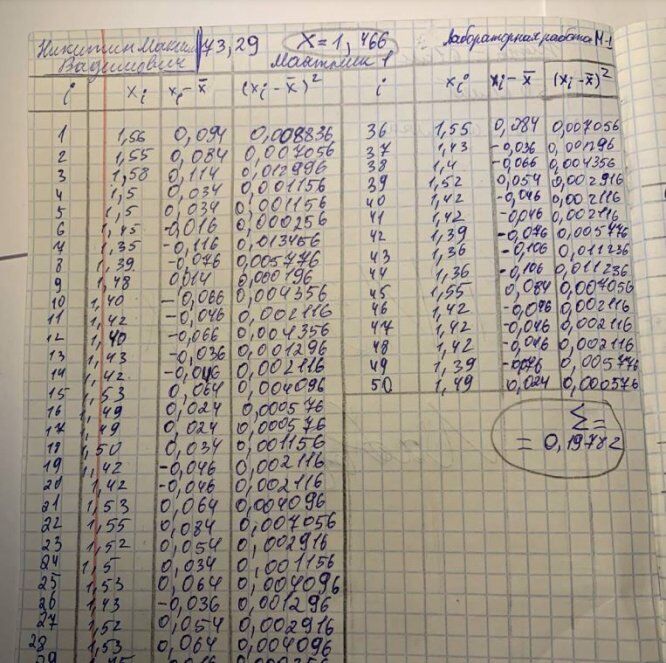 Никитин Максим 73,29 X=1,466 Лабораторная работа №1
Вадимович Маятник 1
i xi xi-x̄ (xi-x̄)² i xi xi-x̄ (xi-x̄)²
1 1,56 0,094 0,008836 36 1,55 0,084 0,007056
2 1,55 0,084 0,007056 37 1,43 -0,036 0,001296
3 1,58 0,114 0,012996 38 1,4 -0,066 0,004356
4 1,5 0,034 0,001156 39 1,52 0,054 0,002916
5 1,5 0,034 0,001156 40 1,42 -0,046 0,002116
6 1,45 -0,016 0,000256 41 1,42 -0,046 0,002116
7 1,35 -0,116 0,013456 42 1,39 -0,076 0,005776
8 1,39 -0,076 0,005776 43 1,36 -0,106 0,011236
9 1,48 0,014 0,000196 44 1,36 -0,106 0,011236
10 1,40 -0,066 0,004356 45 1,55 0,084 0,007056
11 1,42 -0,046 0,002116 46 1,42 -0,046 0,002116
12 1,40 -0,066 0,004356 47 1,42 -0,046 0,002116
13 1,43 -0,036 0,001296 48 1,42 -0,046 0,002116
14 1,42 -0,046 0,002116 49 1,39 -0,076 0,005776
15 1,53 0,064 0,004096 50 1,49 0,024 0,000576
16 1,49 0,024 0,000576 Σ=
17 1,49 0,024 0,000576 = 0,19782
18 1,50 0,034 0,001156
19 1,42 -0,046 0,002116
20 1,42 -0,046 0,002116
21 1,53 0,064 0,004096
22 1,55 0,084 0,007056
23 1,52 0,054 0,002916
24 1,5 0,034 0,001156
25 1,53 0,064 0,004096
26 1,43 -0,036 0,001296
27 1,52 0,054 0,002916
28 1,53 0,064 0,004096